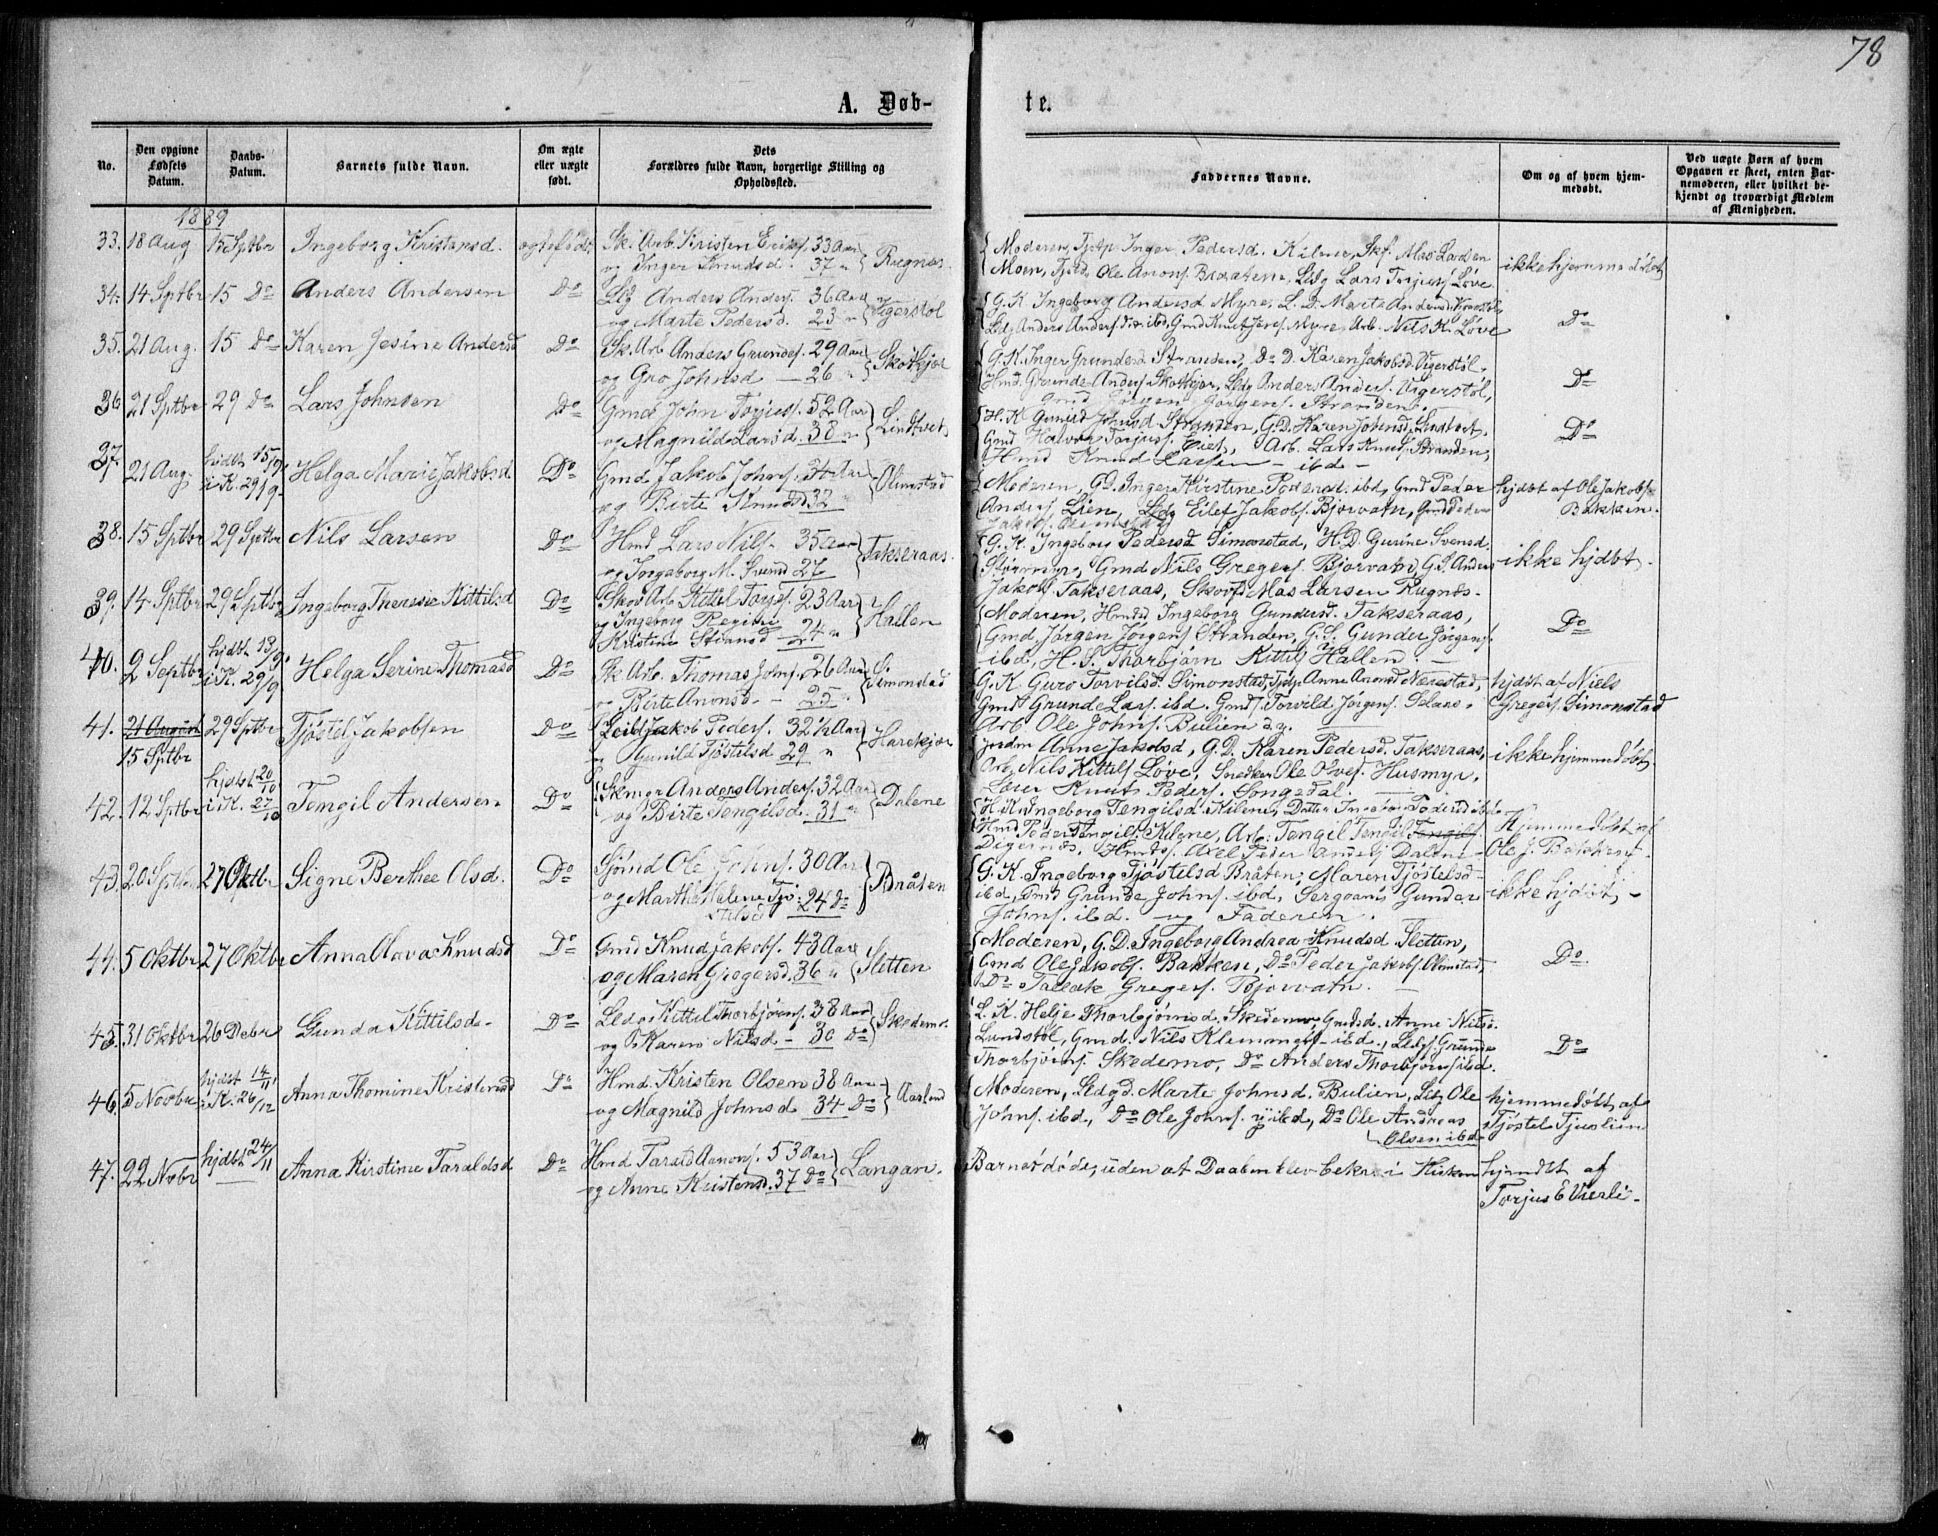 78
A. Døb-
te.
No.
Den opgivne Fødsels Datum.
Daabs-Datum.
Barnets fulde Navn.
Om ægte eller uægte født.
Dets Forældres fulde Navn, borgerlige Stilling og Opholdssted.
Faddernes Navne.
Om og af hvem hjemmedøbt.
Ved uægte Børn af hvem Opgaven er skeet, enten Barnemoderen, eller hvilket bekjendt og troværdigt Medlem af Menigheden.
1889
33. 18 Aug 15 Sptbr Ingeborg Kristensd. ægtefødt Sk. Arb. Kristen Eriks. 33 Aar
og Inger Knudsd. 37 " Rugnæs
Moderen, Tjstp. Inger Pedersd. Kilene, Skf. Mas Larsen
Moen, Tjstd. Ole Anons. Braatene, Ldg Lars Torjus. Løve
ikke hjemmedøbt
34. 14 Sptbr 15 Do Anders Andersen Do Ldg Anders Anders. 36 Aar
og Marte Pedersd. 23 " Vigerstøl
G. K. Ingeborg Andersd Myre, L. D. Marte Andersd
Ldg Anders Anders. ibd, Gmd Knut Jens. Myre, Arb. Nils K. Løve
Do
35. 21 Aug. 15 Do Karen Jesine Andersd Do Sk. Arb Anders Grundes. 29 Aar
og Gro Johnsd — 26 " Skotkjær
G. K. Inger Grundesd Stranden, Do D. Karen Jakobsd. Vigerstøl,
Hmd. Grunde Anders. Skotkjær, Ldg Anders Anders. Vigerstøl,
Gmd Jørgen Jørgens. Stranden.
Do
36 21 Sptbr 29 Do Lars Johnsen Do Gmd John Torjus. 52 Aar
og Magnild Larsd. 38 " Lindtveit
H. K. Gunild Johnsd. Stranden, G. D. Karen Johnsd. Lindtveit,
Gmd Halvor Torjus. Lien, Arb. Lars Knuts. Stranden,
Hmd Knud Larsen — ibd —
Do
37. 21 Aug. hjdt 15/9 i K. 29/9 Helga Marie Jakobsd Do Gmd Jakob Johns. 34 Aar
og Birte Knudsd 32 " Olimstad
Moderen, G. D. Inger Kirstine Pedersd. ibd, Gmd Peder
Anders. Lien, Ldg Eilef Jakobs. Bjorvatn, Gmd Peder
Jakobs. Olimstad
hjdbt af Ole Jakobs.
Bakken.
38. 15 Sptbr 29 Sptbr Nils Larsen Do Hmd Lars Nils. 35 Aar
og Ingeborg M. Svensd 27 Takseraas.
G. K. Ingebor Pedersd Simonstad, H. D. Gurine Svensd.
Gmd Nils Gregers. Bjorvatn, G. S. Anders
Jakobs. Takseraas, Skovf. Mas Larsen Rugnæs
ikke hjdbt.
39. 14 Sptbr 29 Sptbr Ingeborg Therese Kittilsd Do Skov Arb Kittel Torjes. 23 Aar
og Ingeborg Regine
Kristine 24 " Hallen
Moderen, Hmds D Ingeborg Gundersd. Takseraas,
Gmd, Jørgen Jørgens. Stranden, G. S. Gunder Jørgens.
ibd, H. S. Thorbjørn Kittils. Hallen. —
Do
40. 2 Septbr hjdbt 13/9 i K. 29/9 Helga Serine Thomasd Do Sk. Arb. Thomas Johns. 26 Aar
og Birte Anonsd — 25 " S. Simonstad
G. K Guro Torvilsd. Simonstad, Tjstp Anne Anonsd Nærestad,
Gmd Grunde Lars. ibd. Gmds. Torvild Jørgens. Selaas,
Arb. Ole Johns. Bulien
hjdbt af Niels
Gregers. Simonstad
41. 21 August 15 Sptbr 29 Sptbr Tjøstel Jakobsen Do Leild Jakob Peders. 32½ Aar
og Gunild Tjøstelsd 29 " Harekjær
Anne Jakobsd, G. D. Karen Pedersd. Takseraas,
Arb Nils Kittils. Løve, Snedker Ole Olves. Husmyr,
Lærer Knut Peders. Songedal. —
ikke hjemmedøbt.
42. 12 Sptbr hjdbt 20/10 i K. 27/10 Tengil Andersen Do Skmgr Anders Anders. 32 Aar
og Birte Tengilsd. 31 " Dalene
H. K. Ingeborg Tengilsd. Kilene, Datter Inger Pedersd ibd
Hmd. Peder Tengils. Kilene, Arb: Tengil Tengils. Tengils.
Digernæs, Hmds Axel Peder Anders. Dalene
Hjemmedøbt af
Ole J. Bakken.
43. 20 Sptbr 27 Oktbr Signe Berthee Olsd. Do Sjømd Ole Johns. 30 Aar
og Marthe Helene Tjøstelsd 24 Do Bråten
G. K. Ingeborg Tjøstelsd Bråten, Maren Tjøstelsd
ibd, Gmd Grunde Johns. ibd, Sergeant Gunder
Johns. ibd. og Faderen.
ikke hjdbt —
44. 5 Oktbr 27 Oktbr Anna Olova Knudsd Do Gmd Knud Jakobs. 43 Aar
og Maren Gregersd. 36 " Sletten
Moderen, G. D. Ingeborg Andrea Knudsd. Sletten,
Gmd Ole Jakobs. Bakken, Do Peder Jakobs. Olimstad,
Do Tallak Gregers. Bjorvatn. —
Do
45. 31 Oktbr 26 Debr Gunda Kittilsd. Do Ledg Kittel Thorbjørns. 38 Aar
og Karen Nilsd — 30 Do Skedemo.
L. K. Helje Thorbjørnsd. Skedemo, Gmdsd. Anne Nilsd.
Lundstøl, Gmd. Nils Klemmets — ibd., Ledgs. Grunde
Thorbjørns. Skedemo, Do Anders Thorbjørns. ibd.
Do
46. 5 Novbr hjdbt 14/11 i K. 26/12 Anna Thomine Kristensd Do Hmd. Kristen Olsen 38 Aar
og Magnild Johnsd 34 Do Aasland
Moderen, Ledg d. Marte Johnsd. Bulien, Ldg Ole
Johns. ibd, Do Ole Johns. yibd, Do Ole Andreas
Olsen ibd
hjemmedøbt af
Tjøstel Tjuslien
47. 22 Novbr hjdbt 24/11 Anna Kirstine Taraldsd Do Hmd Tarald Aanons. 53 Aar
og Anne Kristensd. 37 Do Langan.
Barnet døde, uden at Daaben blev bekr. i Kirken
hjmdbt af
Torjus E Vierli.